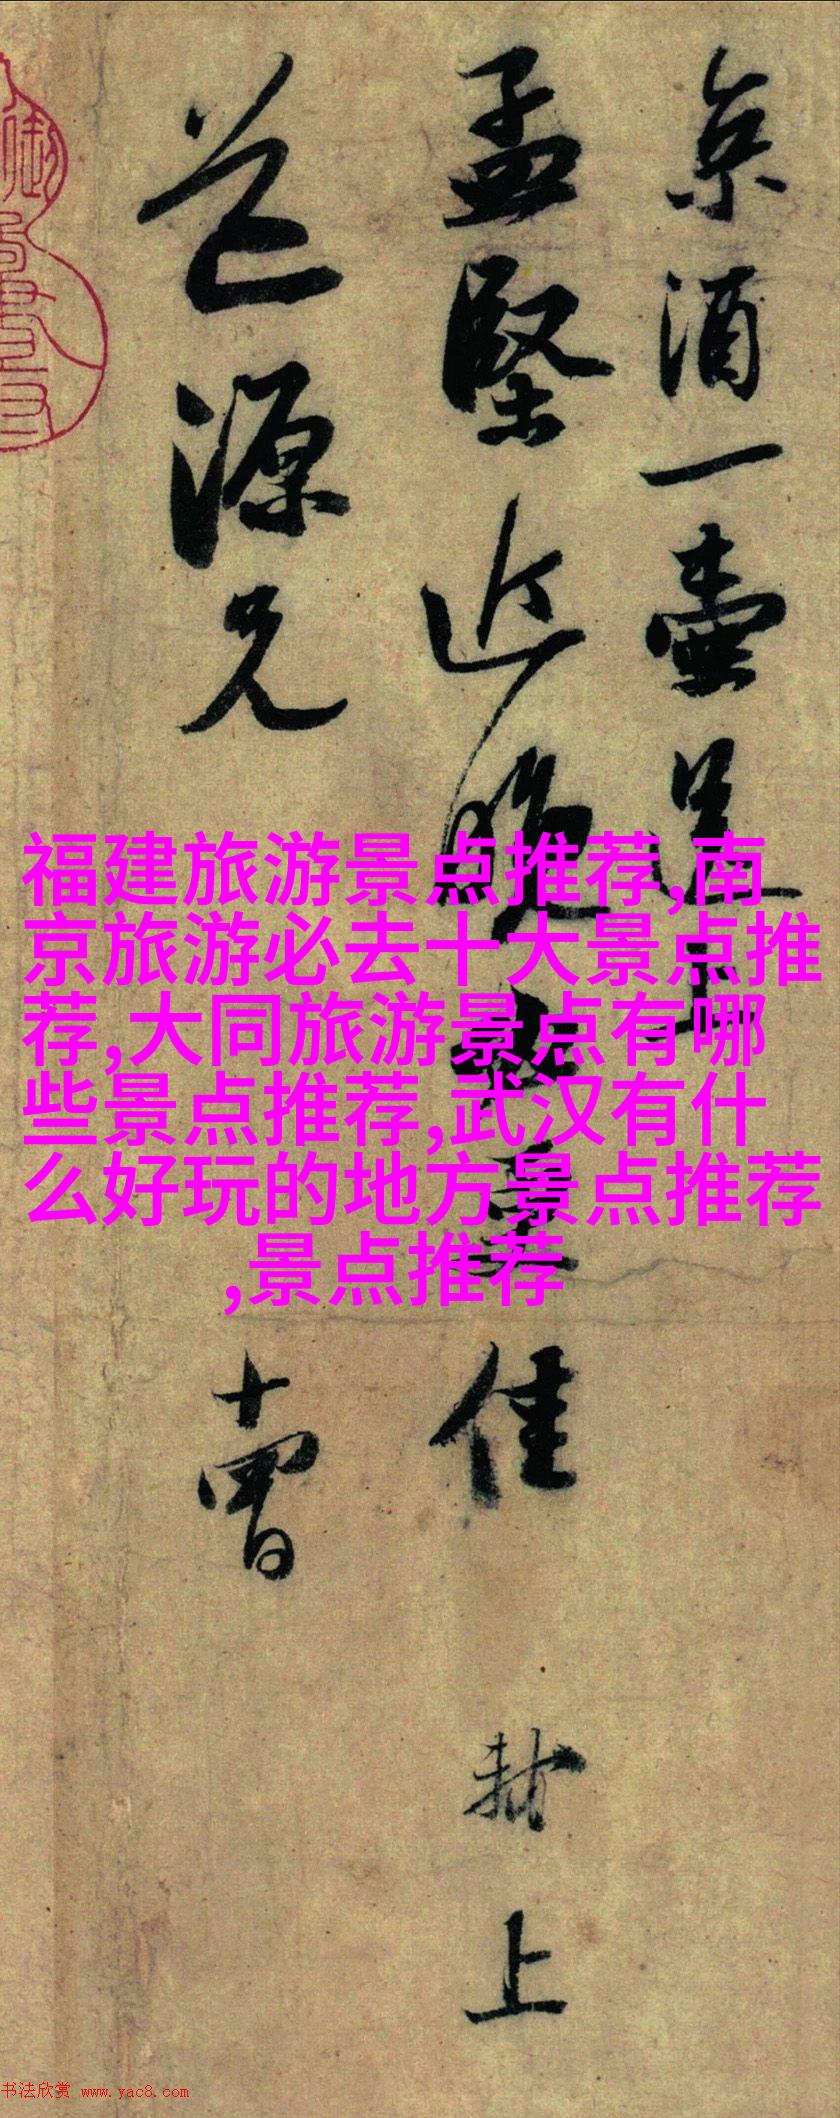 京酒一壶送上
孟坚近晚必更佳
轼上
道源兄
十曹
福建旅游景点推荐,南
京旅游必去十大景点推
荐,大同旅游景点有哪
些景点推荐,武汉有什
么好玩的地方景点推荐
,景点推荐
书法欣赏 www.yac8.com